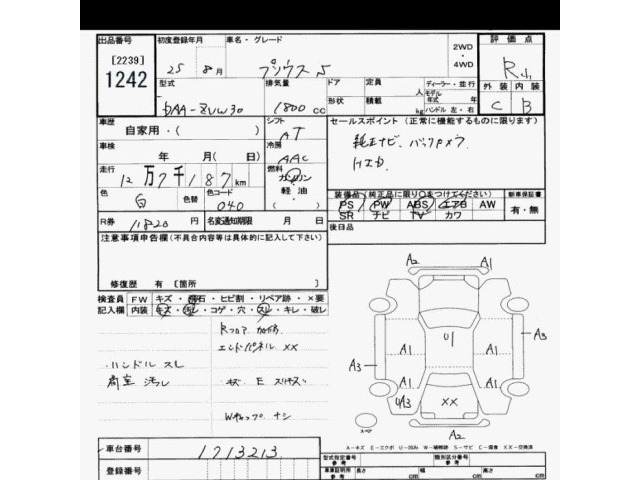 出品番号 初度登録年月 車名・グレード 評価点
[2239] 25年 8月 プリウス S 2WD・4WD R
1242 型式 排気量 ドア 定員 人 ディーラー・並行 外装 内装
DAA-ZVW30 1800cc 形状 積載 kg モデル年式 年 ハンドル 左・右 C B
車歴 自家用・( ) シフト AT セールスポイント (正常に機能するものに限ります)
車検 年 月( 日) 冷房 AAC 純正ナビ、バックカメラ
走行 12万7千187km 燃料 ガソリン・軽油・( )
色 白 色替 色コード 040 装備品(純正品に限り○をつけてください) 新車保証書
PS PW ABS エアB AW 有・無
SR ナビ TV カワ
R券 11820円 名変通知期限 月 日 後日品
注意事項申告欄(不具合内容等は具体的に記入して下さい)
修復歴 有 [箇所 ]
検査員記入欄 FW キズ・飛石・ヒビ割・リペア跡・×要
内装 キズ・汚レ・コゲ・穴・スレ・キレ・破レ
Rフロア
エンドパネル XX
ハンドル スレ
荷室 汚レ
キズ E
Wキャップ ナシ
A2 A1
A1 A1 U1 A3
A3
A1 A1
XX
A2
スペア
A-キズ E-エクボ U-凹み W-補修跡 S-サビ C-腐食 XX-交換済
車台番号 1713213
登録番号
型式指定番号 参考 類別区分番号 参考
車庫証明用 参考 長さ cm 幅 cm 高さ cm